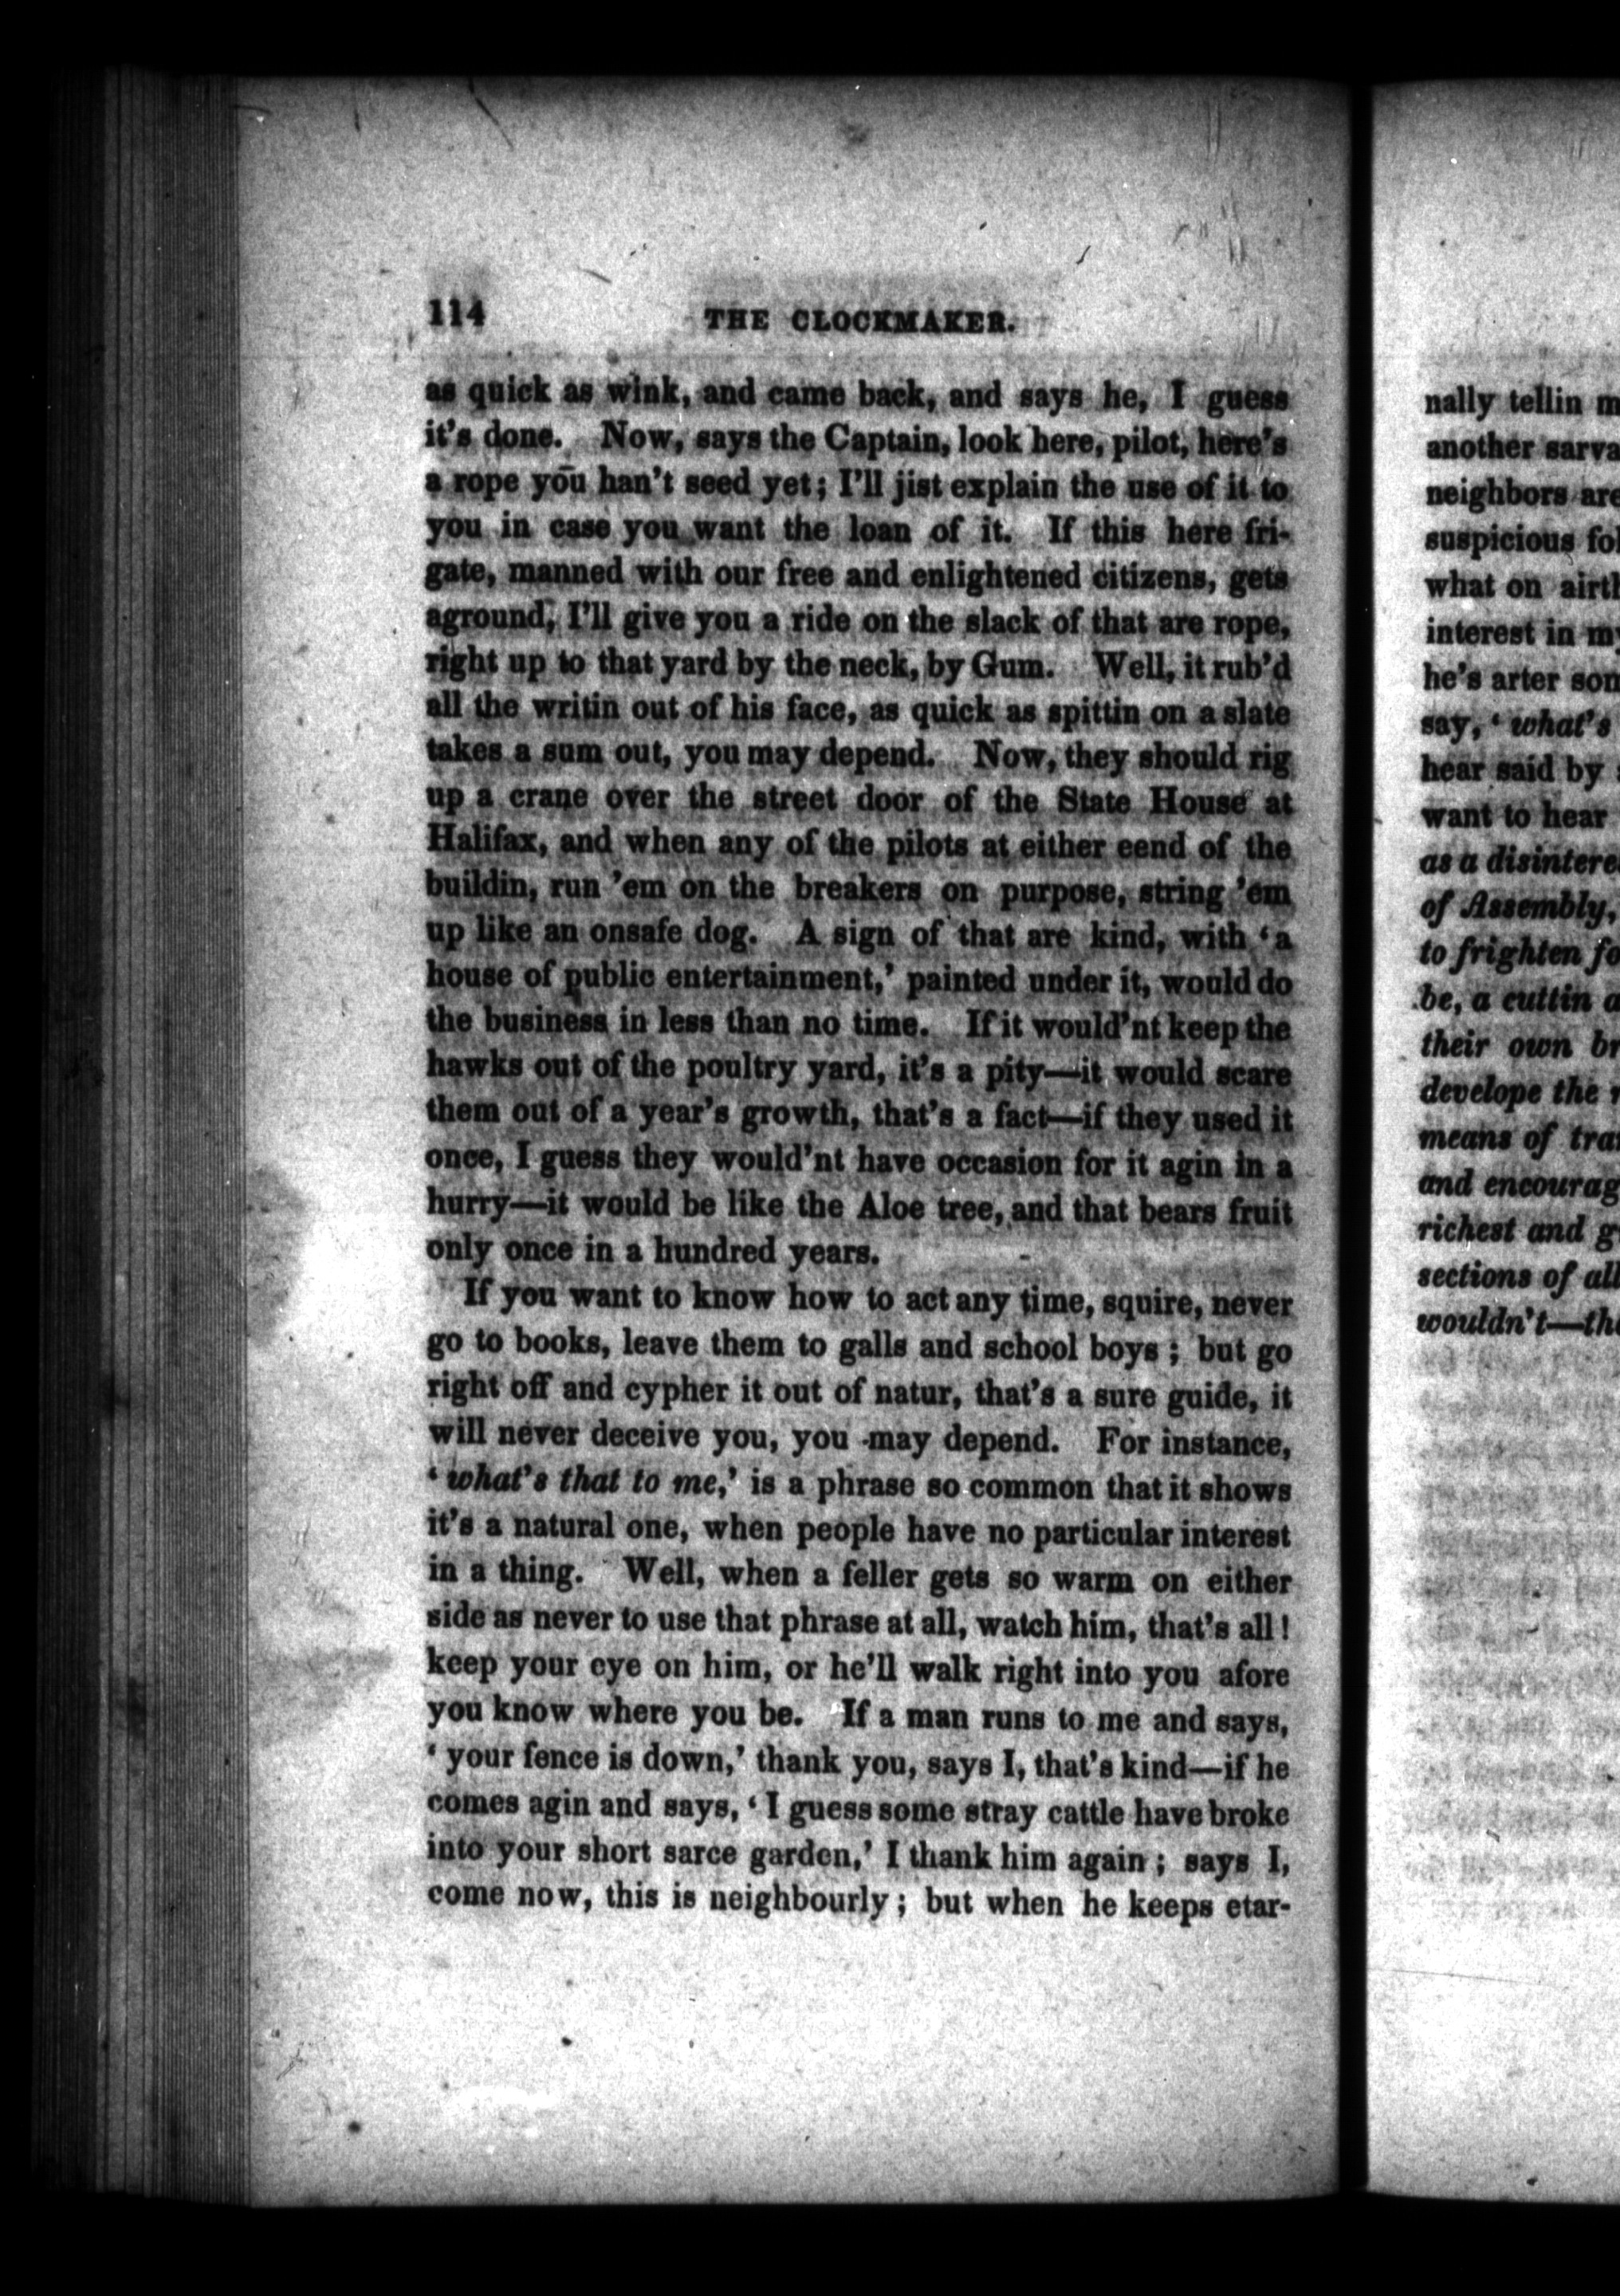 114 THE CLOCKMAKER.
as quick as wink, and came back, and says he, I guess
it's done. Now, says the Captain, look here, pilot, here's
a rope you han't seed yet; I'll jist explain the use of it to
you in case you want the loan of it. If this here fri-
gate, manned with our free and enlightened citizens, gets
aground, I'll give you a ride on the slack of that are rope,
right up to that yard by the neck, by Gum. Well, it rub'd
all the writin out of his face, as quick as spittin on a slate
takes a sum out, you may depend. Now, they should rig
up a crane over the street door of the State House at
Halifax, and when any of the pilots at either eend of the
buildin, run 'em on the breakers on purpose, string 'em
up like an onsafe dog. A sign of that are kind, with 'a
house of public entertainment,' painted under it, would do
the business in less than no time. If it would'nt keep the
hawks out of the poultry yard, it's a pity—it would scare
them out of a year's growth, that's a fact—if they used it
once, I guess they would'nt have occasion for it agin in a
hurry—it would be like the Aloe tree, and that bears fruit
only once in a hundred years.
If you want to know how to act any time, squire, never
go to books, leave them to galls and school boys; but go
right off and cypher it out of natur, that's a sure guide, it
will never deceive you, you may depend. For instance,
'what's that to me,' is a phrase so common that it shows
it's a natural one, when people have no particular interest
in a thing. Well, when a feller gets so warm on either
side as never to use that phrase at all, watch him, that's all!
keep your eye on him, or he'll walk right into you afore
you know where you be. If a man runs to me and says,
'your fence is down,' thank you, says I, that's kind—if he
comes agin and says, 'I guess some stray cattle have broke
into your short sarce garden,' I thank him again; says I,
come now, this is neighbourly; but when he keeps etar-
nally tellin
another
neighbors
suspicious
what on
interest in
he's arter
say, 'what's
hear said by
want to hear
as a
of Assembly,
to frighten
be, a cuttin
their own
develope the
means of
and
richest and
sections of
wouldn't—